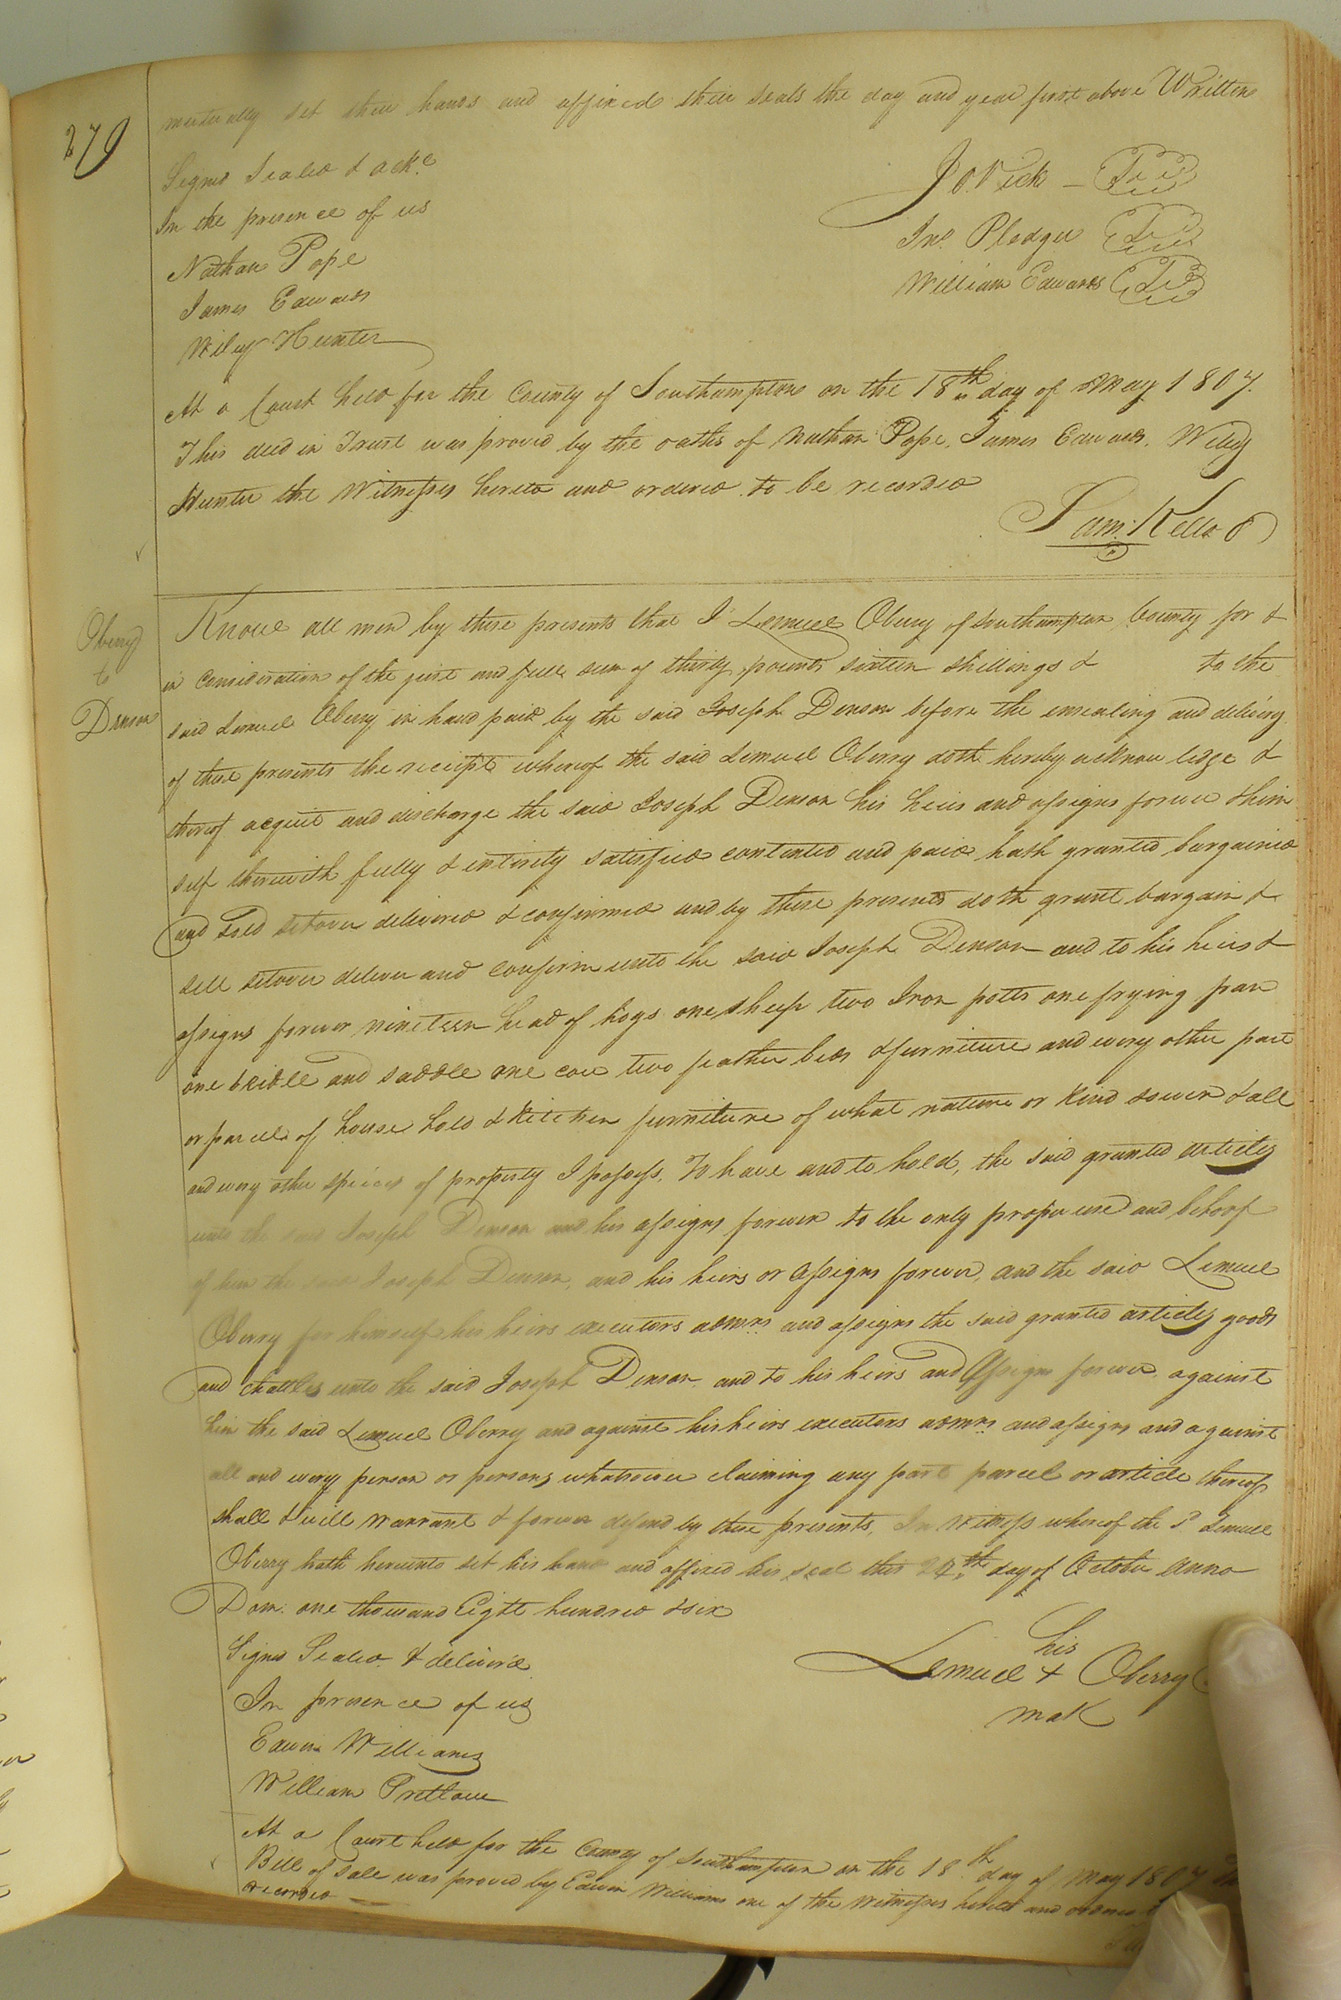 279
mutually set their hands and affixed their seals the day and year first above Written
Signd Sealed & ackd.
In the presence of us
Nathan Pope
James Edwards
Wiley Hunter
Jo. Vick
Jno. Pledger
William Edwards
At a Court held for the County of Southampton on the 18th day of May 1807.
This deed in Trust was proved by the oaths of Nathan Pope, James Edwards, Wiley
Hunter the Witnesses hereto and ordered to be recorded
Sam: Kello
Oberry
to
Denson
Know all men by these presents that I Lemuel Oberry of Southampton County for &
in consideration of the just and full sum of thirty pounds sixteen shillings & to the
said Lemuel Oberry in hand paid by the said Joseph Denson before the ensealing and delivery
of these presents the receipt whereof the said Lemuel Oberry doth hereby acknowledge &
thereof acquit and discharge the said Joseph Denson his heirs and assigns forever & him
self therewith fully & entirely satisfied contented and paid hath granted bargained
and Sold setover delivered & confirmed and by these presents doth grant bargain &
sell setover deliver and confirm unto the said Joseph Denson and to his heirs &
assigns forever nineteen head of hogs one sheep two Iron potts one frying pan
one bridle and saddle one cow two feather beds & furniture and every other part
or parcel of house hold & kitchen furniture of what nature or kind soever & all
and every other species of property I possess, To have and to hold, the said granted articles
unto the said Joseph Denson and his assigns forever to the only proper use and behoof
of him the said Joseph Denson, and his heirs or assigns forever, and the said Lemuel
Oberry for himself his heirs executors admrs and assigns the said granted articles goods
and chattles unto the said Joseph Denson and to his heirs and assigns forever against
him the said Lemuel Oberry and against his heirs executors admrs and assigns and against
all and every person or persons whatsoever claiming any part parcel or article thereof
shall & will warrant & forever defend by these presents, In Witness whereof the Sd Lemuel
Oberry hath hereunto set his hand and affixed his seal this 24th day of October anno
Dom: one thousand Eight hundred & six
Signd Sealed & deliverd
In presence of us
Edwin Williams
William Pretlow
his
Lemuel + Oberry
mak
At a Court held for the County of Southampton on the 18th day of May 1807
Bill of Sale was proved by Edwin Williams one of the Witnesses hereto and ordered
recorded